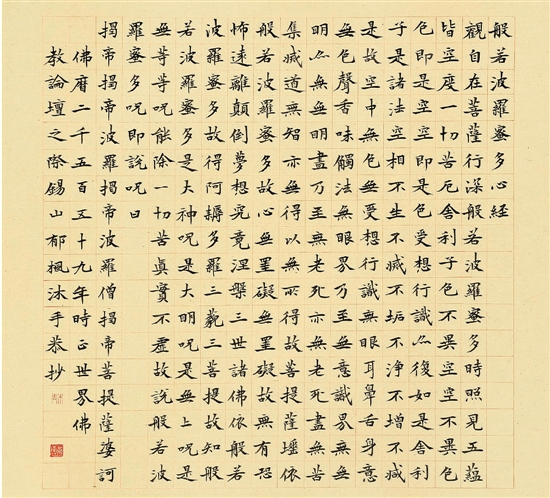 般若波羅蜜多心經
觀自在菩薩行深般若波羅蜜多時照見五蘊
皆空度一切苦厄舍利子色不異空空不異色
色即是空空即是色受想行識亦復如是舍利
子是諸法空相不生不滅不垢不淨不增不減
是故空中無色無受想行識無眼耳鼻舌身意
無色聲香味觸法無眼界乃至無意識界無無
明亦無無明盡乃至無老死亦無老死盡無苦
集滅道無智亦無得以無所得故菩提薩埵依
般若波羅蜜多故心無罣礙無罣礙故無有恐
怖遠離顛倒夢想究竟涅槃三世諸佛依般若
波羅蜜多故得阿耨多羅三藐三菩提故知般
若波羅蜜多是大神咒是大明咒是無上咒是
無等等咒能除一切苦真實不虛故說般若波
羅蜜多咒即說咒曰
揭帝揭帝波羅揭帝波羅僧揭帝菩提薩婆訶
佛曆二千五百五十九年時正世界佛
教論壇之際錫山郁楓沐手恭抄